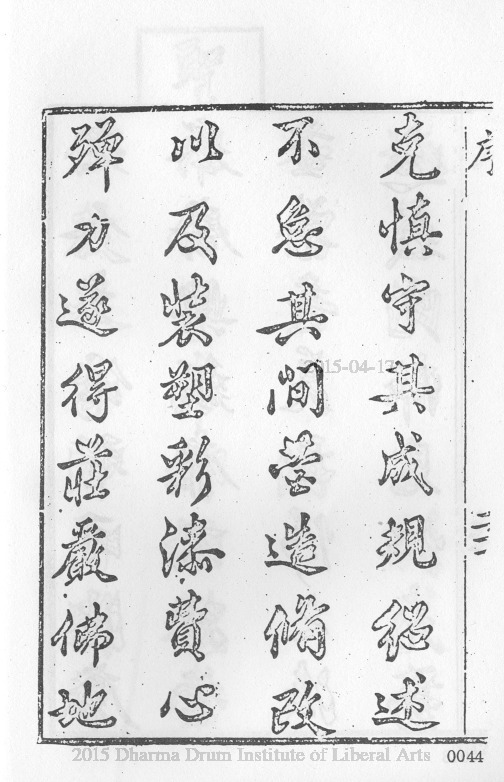 序
三
克慎守其成規紹述
不怠其間營造脩改
以及裝塑彩漆費心
殫力遂得莊嚴佛地
2015-04-17
2015 Dharma Drum Institute of Liberal Arts
0044